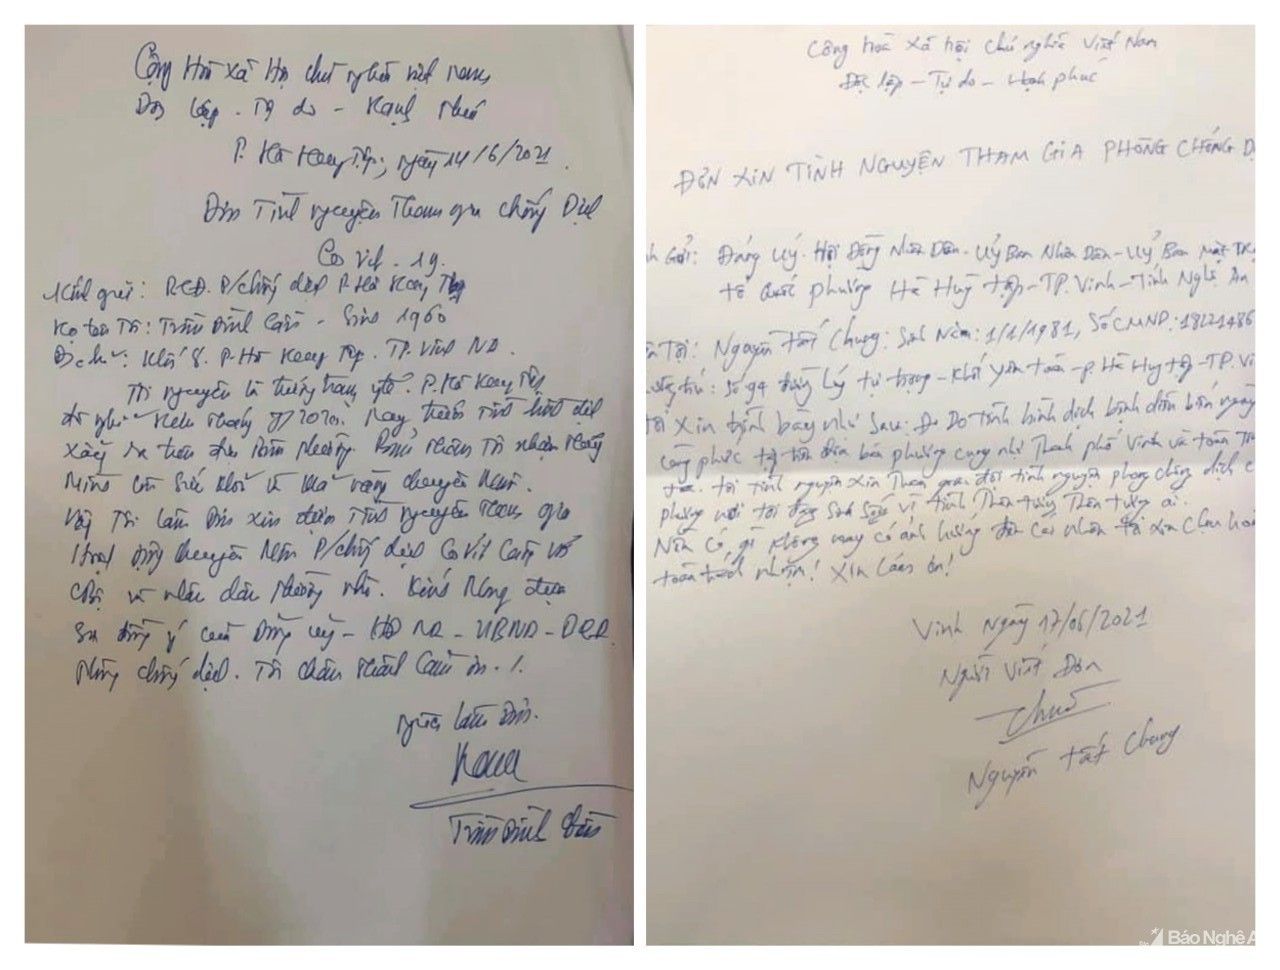 Cộng Hoà Xã Hội chủ nghĩa Việt Nam
Độc lập - Tự do - Hạnh Phúc
P. Hà Huy Tập, ngày 14/6/2021
Đơn Tình nguyện Tham gia chống Dịch
Covit - 19.
Kính gửi: BCĐ. P/chống dịch P. Hà Huy Tập
Họ tên Tôi: Trần Đình - Sinh 1960
Địa chỉ: Khối 8. P. Hà Huy Tập. TP. Vinh NA.
Tôi nguyên là trưởng trạm ytế. P. Hà Huy Tập
đã nghỉ hưu tháng 2020. Nay, trước tình hình dịch
xảy ra trên địa bàn Phường. Bản thân Tôi nhận thấy
Mình còn sức khoẻ và khả năng chuyên Môn.
Vậy Tôi làm Đơn xin được Tình nguyện tham gia
Hoạt động chuyên Môn P/chống dịch Covit cùng
và nhân dân Phường nhà. Kính Mong được
Sự đồng ý của Đảng uỷ - HĐND - UBND -
Phòng chống dịch. Tôi chân thành Cảm ơn./.
Người làm Đơn.
Trần Đình
Cộng hoà xã hội chủ nghĩa Việt Nam
Độc lập - Tự do - Hạnh phúc
ĐƠN XIN TÌNH NGUYỆN THAM GIA PHÒNG CHỐNG D
nh Gửi: Đảng uỷ. Hội Đồng Nhân Dân - Uỷ Ban Nhân Dân - Uỷ Ban Mặt Trận
tổ quốc phường Hà Huy Tập - TP. Vinh - Tỉnh Nghệ An
Tôi: Nguyễn Tất Chung: Sinh Năm: 1/1/1981, Số CMND:
trú: Số 94 đường Lý tự trọng - Khối yên toàn - P. Hà Huy tập - TP. Vi
Tôi Xin trình bày như sau: Do tình hình dịch bệnh diễn biến ngày
càng phức tạp trên địa bàn phường cũng như Thành phố Vinh và toàn
tôi tình nguyện xin tham gia đội tình nguyện phòng chống dịch
phường nơi tôi đang sinh sống vì tinh Thần tương Thân tương ái.
Nếu có gì không may có ảnh hưởng đến cá nhân tôi xin chịu hoàn
toàn trách nhiệm! Xin Cảm ơn!
Vinh Ngày 17/06/2021
Người Viết Đơn
Nguyễn Tất Chung
Báo Nghệ A